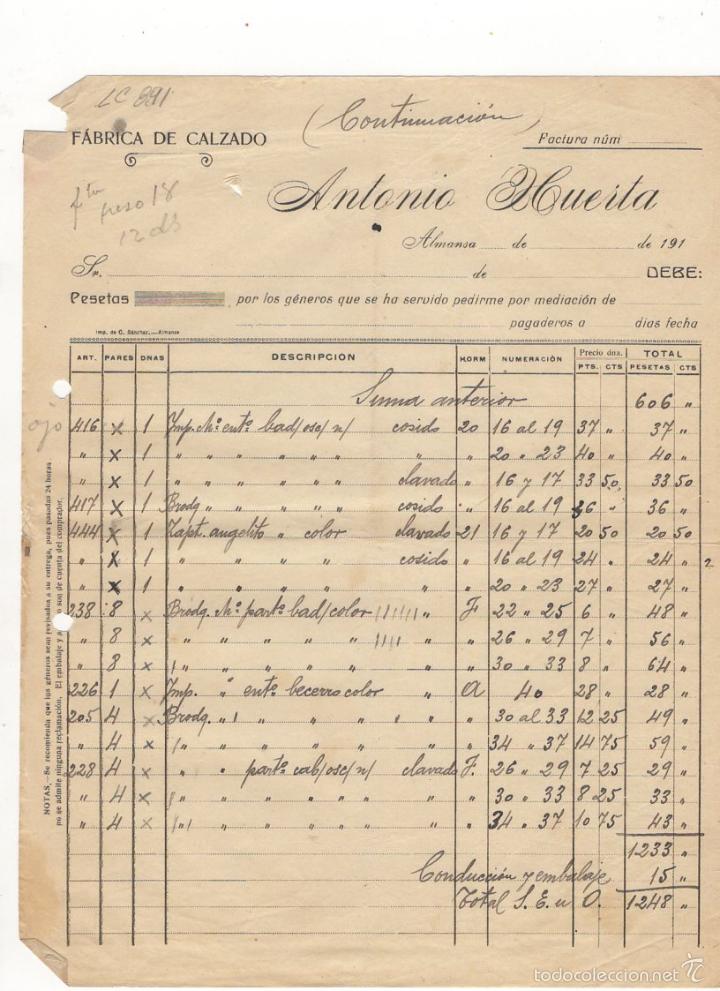 LC 891
(Continuación)
FÁBRICA DE CALZADO
Factura núm
Antonio Huerta
peso 18
12 ds
Almansa de de 191
Sr. de DEBE:
Pesetas por los géneros que se ha servido pedirme por mediación de
pagaderos a días fecha
Imp. de C. Sánchez.—Almansa
ART. PARES DNAS DESCRIPCION HORM NUMERACIÓN Precio dna. PTS. CTS TOTAL PESETAS CTS
Suma anterior 606 "
ojo 416 x 1 Imp. Mº entº bad/osc/n/ cosido 20 16 al 19 37 " 37 "
" x 1 " " " " " " 20 " 23 40 " 40 "
" x 1 " " " " " clavado " 16 y 17 33 50 33 50
417 x 1 Brodq " " " " cosido " 16 al 19 36 " 36 "
444 x 1 Zapt. angelito " color clavado 21 16 y 17 20 50 20 50
" x 1 " " " " cosido " 16 al 19 24 " 24 "
" x 1 " " " " " " 20 " 23 27 " 27 "
238 8 x Brodq. Mº partº bad/color " F 22 " 25 6 " 48 "
" 8 x " " " " " " " 26 " 29 7 " 56 "
" 8 x " " " " " " " 30 " 33 8 " 64 "
226 1 x Imp. " entº becerro color " A 40 28 " 28 "
205 4 x Brodq. " " " " " " 30 al 33 12 25 49 "
" 4 x " " " " " " " 34 " 37 14 75 59 "
228 4 x " " partº cab/osc/n/ clavado F. 26 " 29 7 25 29 "
" 4 x " " " " " " " 30 " 33 8 25 33 "
" 4 x " " " " " " " 34 " 37 10 75 43 "
1233 "
Conducción y embalaje 15 "
Total S. E. u O. 1248 "
NOTAS.—Se recomienda que los géneros sean revisados a su entrega, pues pasadas 24 horas
no se admite ninguna reclamación. El embalaje y son de cuenta del comprador.
todocoleccion.net